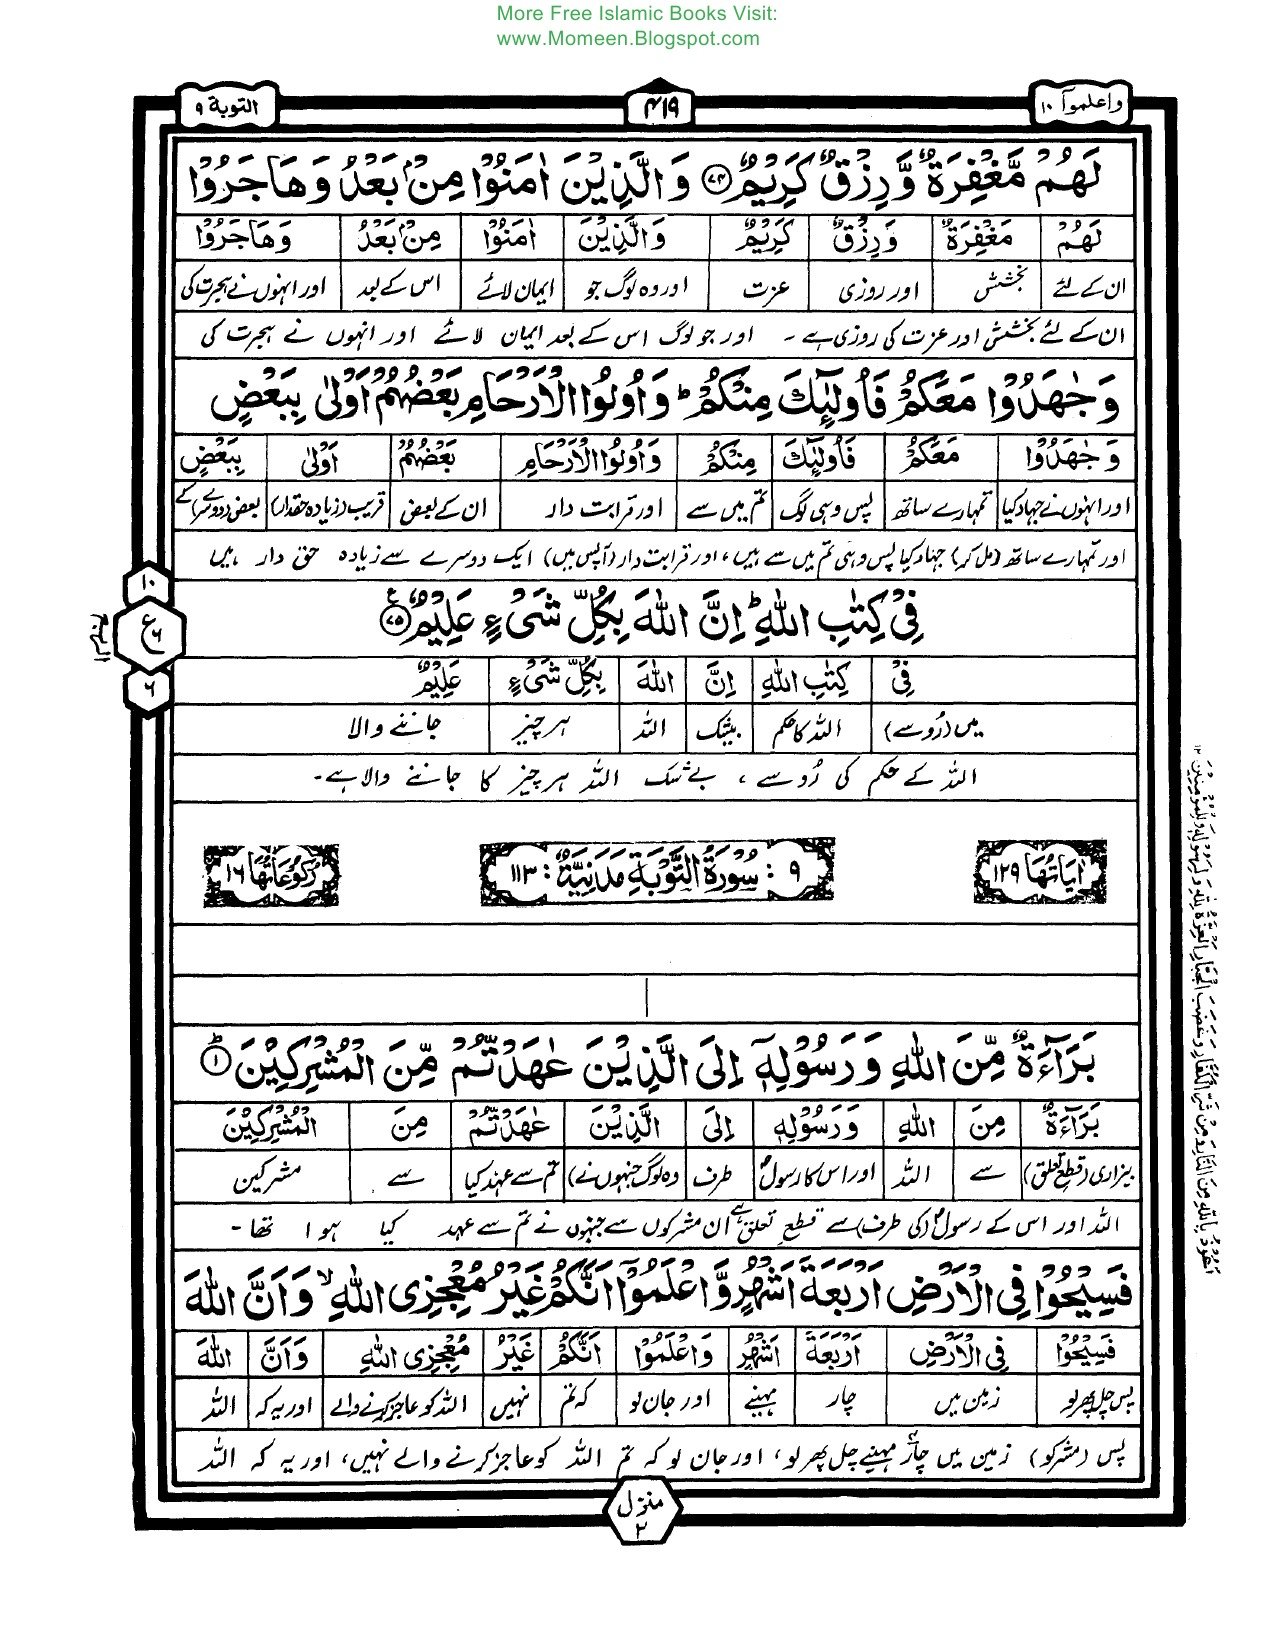 More Free Islamic Books Visit:
www.Momeen.Blogspot.com
واعلموآ ١٠
٤١٩
التوبة ٩
لَهُمْ مَّغْفِرَةٌ وَّرِزْقٌ كَرِيْمٌ ﴿٧٤﴾ وَالَّذِيْنَ اٰمَنُوْا مِنْۢ بَعْدُ وَهَاجَرُوْا
لَهُمْ مَغْفِرَةٌ وَرِزْقٌ كَرِيْمٌ وَالَّذِيْنَ اٰمَنُوْا مِنْۢ بَعْدُ وَهَاجَرُوْا
ان کے لئے بخشش اور روزی عزت اور وہ لوگ جو ایمان لائے اس کے بعد اور انہوں نے ہجرت کی
ان کے لئے بخشش اور عزت کی روزی ہے ۔ اور جو لوگ اس کے بعد ایمان لائے اور انہوں نے ہجرت کی
وَجٰهَدُوْا مَعَكُمْ فَاُولٰٓئِكَ مِنْكُمْ ؕ وَاُولُوا الْاَرْحَامِ بَعْضُهُمْ اَوْلٰى بِبَعْضٍ
وَجٰهَدُوْا مَعَكُمْ فَاُولٰٓئِكَ مِنْكُمْ وَاُولُوا الْاَرْحَامِ بَعْضُهُمْ اَوْلٰى بِبَعْضٍ
اور انہوں نے جہاد کیا تمہارے ساتھ پس وہی لوگ تم میں سے اور قرابت دار ان کے بعض قریب (زیادہ حقدار) بعض (دوسرے) کے
اور تمہارے ساتھ (مل کر) جہاد کیا پس وہی تم میں سے ہیں، اور قرابت دار (آپس میں) ایک دوسرے سے زیادہ حق دار ہیں
فِیْ كِتٰبِ اللّٰهِ ؕ اِنَّ اللّٰهَ بِكُلِّ شَیْءٍ عَلِيْمٌ ﴿٧٥﴾
١٠
ع ٦
٦
فِیْ كِتٰبِ اللّٰهِ اِنَّ اللّٰهَ بِكُلِّ شَیْءٍ عَلِيْمٌ
میں (رُو سے) اللہ کا حکم بیشک اللہ ہر چیز جاننے والا
اللہ کے حکم کی رُو سے ، بے شک اللہ ہر چیز کا جاننے والا ہے ۔
اٰيَاتُهَا ١٢٩
٩ : سُوْرَةُ التَّوْبَةِ مَدَنِيَّةٌ : ١١٣
رُكُوْعَاتُهَا ١٦
بَرَآءَةٌ مِّنَ اللّٰهِ وَرَسُوْلِهٖٓ اِلَى الَّذِيْنَ عٰهَدْتُّمْ مِّنَ الْمُشْرِكِيْنَ ؕ ﴿١﴾
بَرَآءَةٌ مِنَ اللّٰهِ وَرَسُوْلِهٖ اِلَى الَّذِيْنَ عٰهَدْتُّمْ مِنَ الْمُشْرِكِيْنَ
بیزاری (قطع تعلق) سے اللہ اور اس کا رسول طرف وہ لوگ جنہوں نے تم سے عہد کیا سے مشرکین
اللہ اور اس کے رسول (کی طرف) سے قطع تعلق ہے ان مشرکوں سے جنہوں نے تم سے عہد کیا ہوا تھا ۔
فَسِيْحُوْا فِی الْاَرْضِ اَرْبَعَةَ اَشْهُرٍ وَّاعْلَمُوْٓا اَنَّكُمْ غَيْرُ مُعْجِزِی اللّٰهِ ۙ وَاَنَّ اللّٰهَ
فَسِيْحُوْا فِی الْاَرْضِ اَرْبَعَةَ اَشْهُرٍ وَاعْلَمُوْا اَنَّكُمْ غَيْرُ مُعْجِزِی اللّٰهِ وَاَنَّ اللّٰهَ
پس چل پھر لو زمین میں چار مہینے اور جان لو کہ تم نہیں اللہ کو عاجز کرنے والے اور یہ کہ اللہ
پس (مشرکو) زمین میں چار مہینے چل پھر لو ، اور جان لو کہ تم اللہ کو عاجز کرنے والے نہیں، اور یہ کہ اللہ
منزل ٢
اَعُوْذُ بِاللّٰهِ مِنَ النَّارِ وَمِنْ شَرِّ الْكُفَّارِ وَغَضَبِ الْجَبَّارِ الْعِزَّةُ لِلّٰهِ وَلِرَسُوْلِهٖ وَلِلْمُؤْمِنِيْنَ ١٢